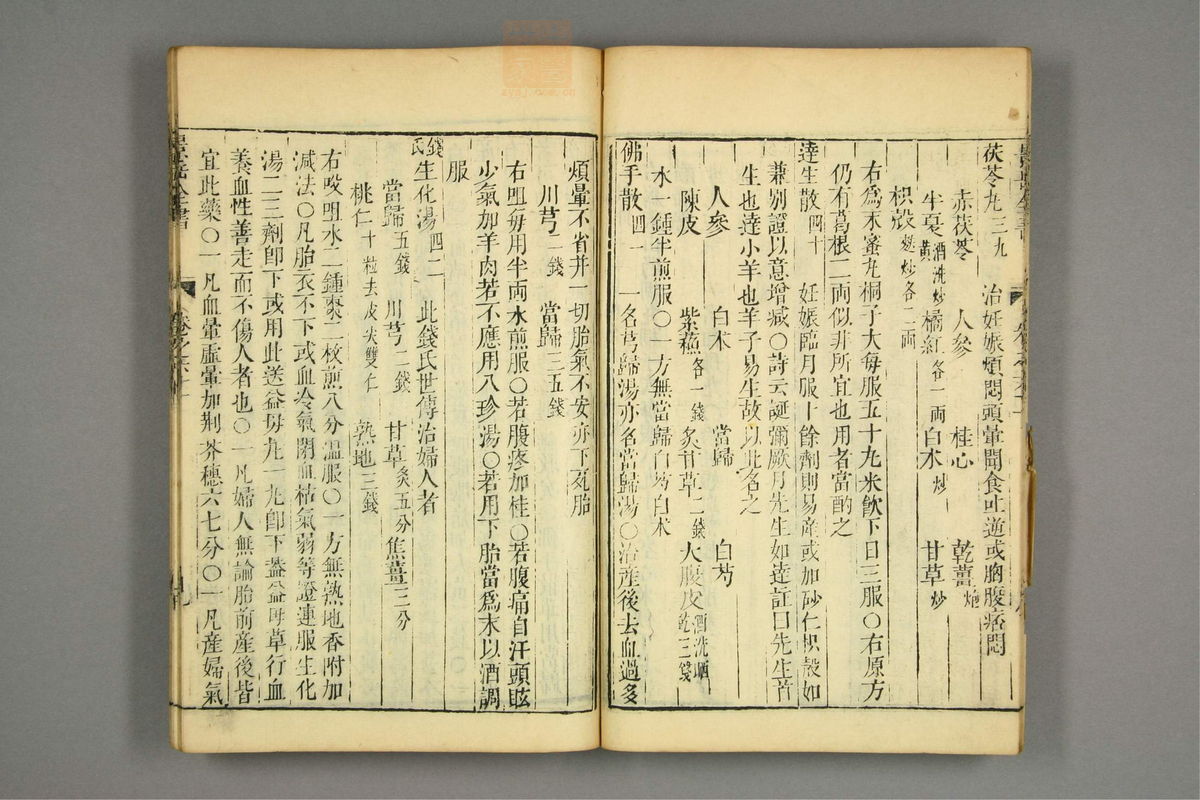 茯苓丸三九 治妊娠煩悶頭暈聞食吐逆或胸腹痞悶
赤茯苓 人參 桂心 乾薑炮
半夏酒洗炒黃 橘紅各一両 白朮炒 甘草炒
枳殼麩炒各二両
右爲末蜜丸桐子大毎服五十丸米飲下日三服〇右原方
仍有葛根二両似非所宜也用者當酌之
達生散四十 妊娠臨月服十餘劑則易産或加砂仁枳殼如
兼別證以意增減〇詩云誕彌厥月先生如達註曰先生首
生也達小羊也羊子易生故以此名之
人參 白朮 當歸 白芍
陳皮 紫蘇各一錢 炙甘草二錢 大腹皮酒洗晒乾三錢
水一鍾半煎服〇一方無當歸白芍白朮
佛手散四一 一名芎歸湯亦名當歸湯〇治産後去血過多
煩暈不省并一切胎氣不安亦下死胎
川芎二錢 當歸三五錢
右㕮毎用半両水煎服〇若腹疼加桂〇若腹痛自汗頭眩
少氣加羊肉若不應用八珍湯〇若用下胎當爲末以酒調
服
錢氏生化湯四二 此錢氏世傳治婦人者
當歸五錢 川芎二錢 甘草炙五分 焦薑三分
桃仁十粒去皮尖雙仁 熟地三錢
右㕮咀水二鍾棗二枚煎八分温服〇一方無熟地香附加
減法〇凡胎衣不下或血冷氣閉血枯氣弱等證連服生化
湯二三劑卽下或用此送益母丸一丸卽下蓋益母草行血
養血性善走而不傷人者也〇一凡婦人無論胎前産後皆
宜此藥〇一凡血暈虛暈加荆芥穗六七分〇一凡産婦氣